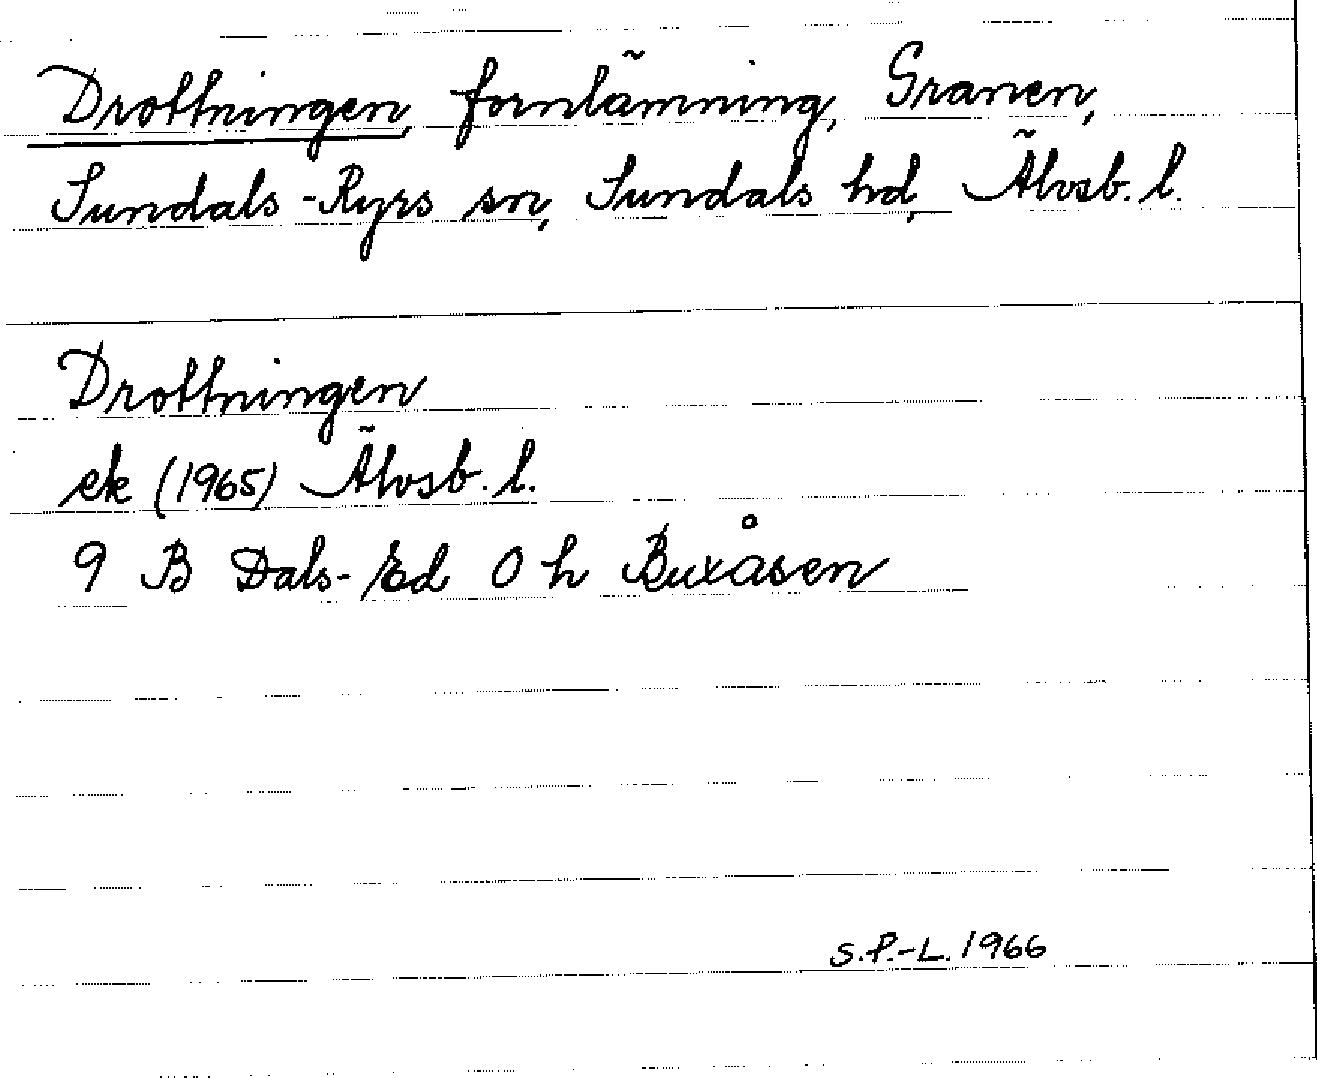 Drottningen, fornlämning, Granen,
Sundals-Ryrs sn, Sundals hd, Älvsb. l.
Drottningen
ek (1965) Älvsb. l.
9 B Dals-Ed 0 h Buxåsen
S.P.-L. 1966